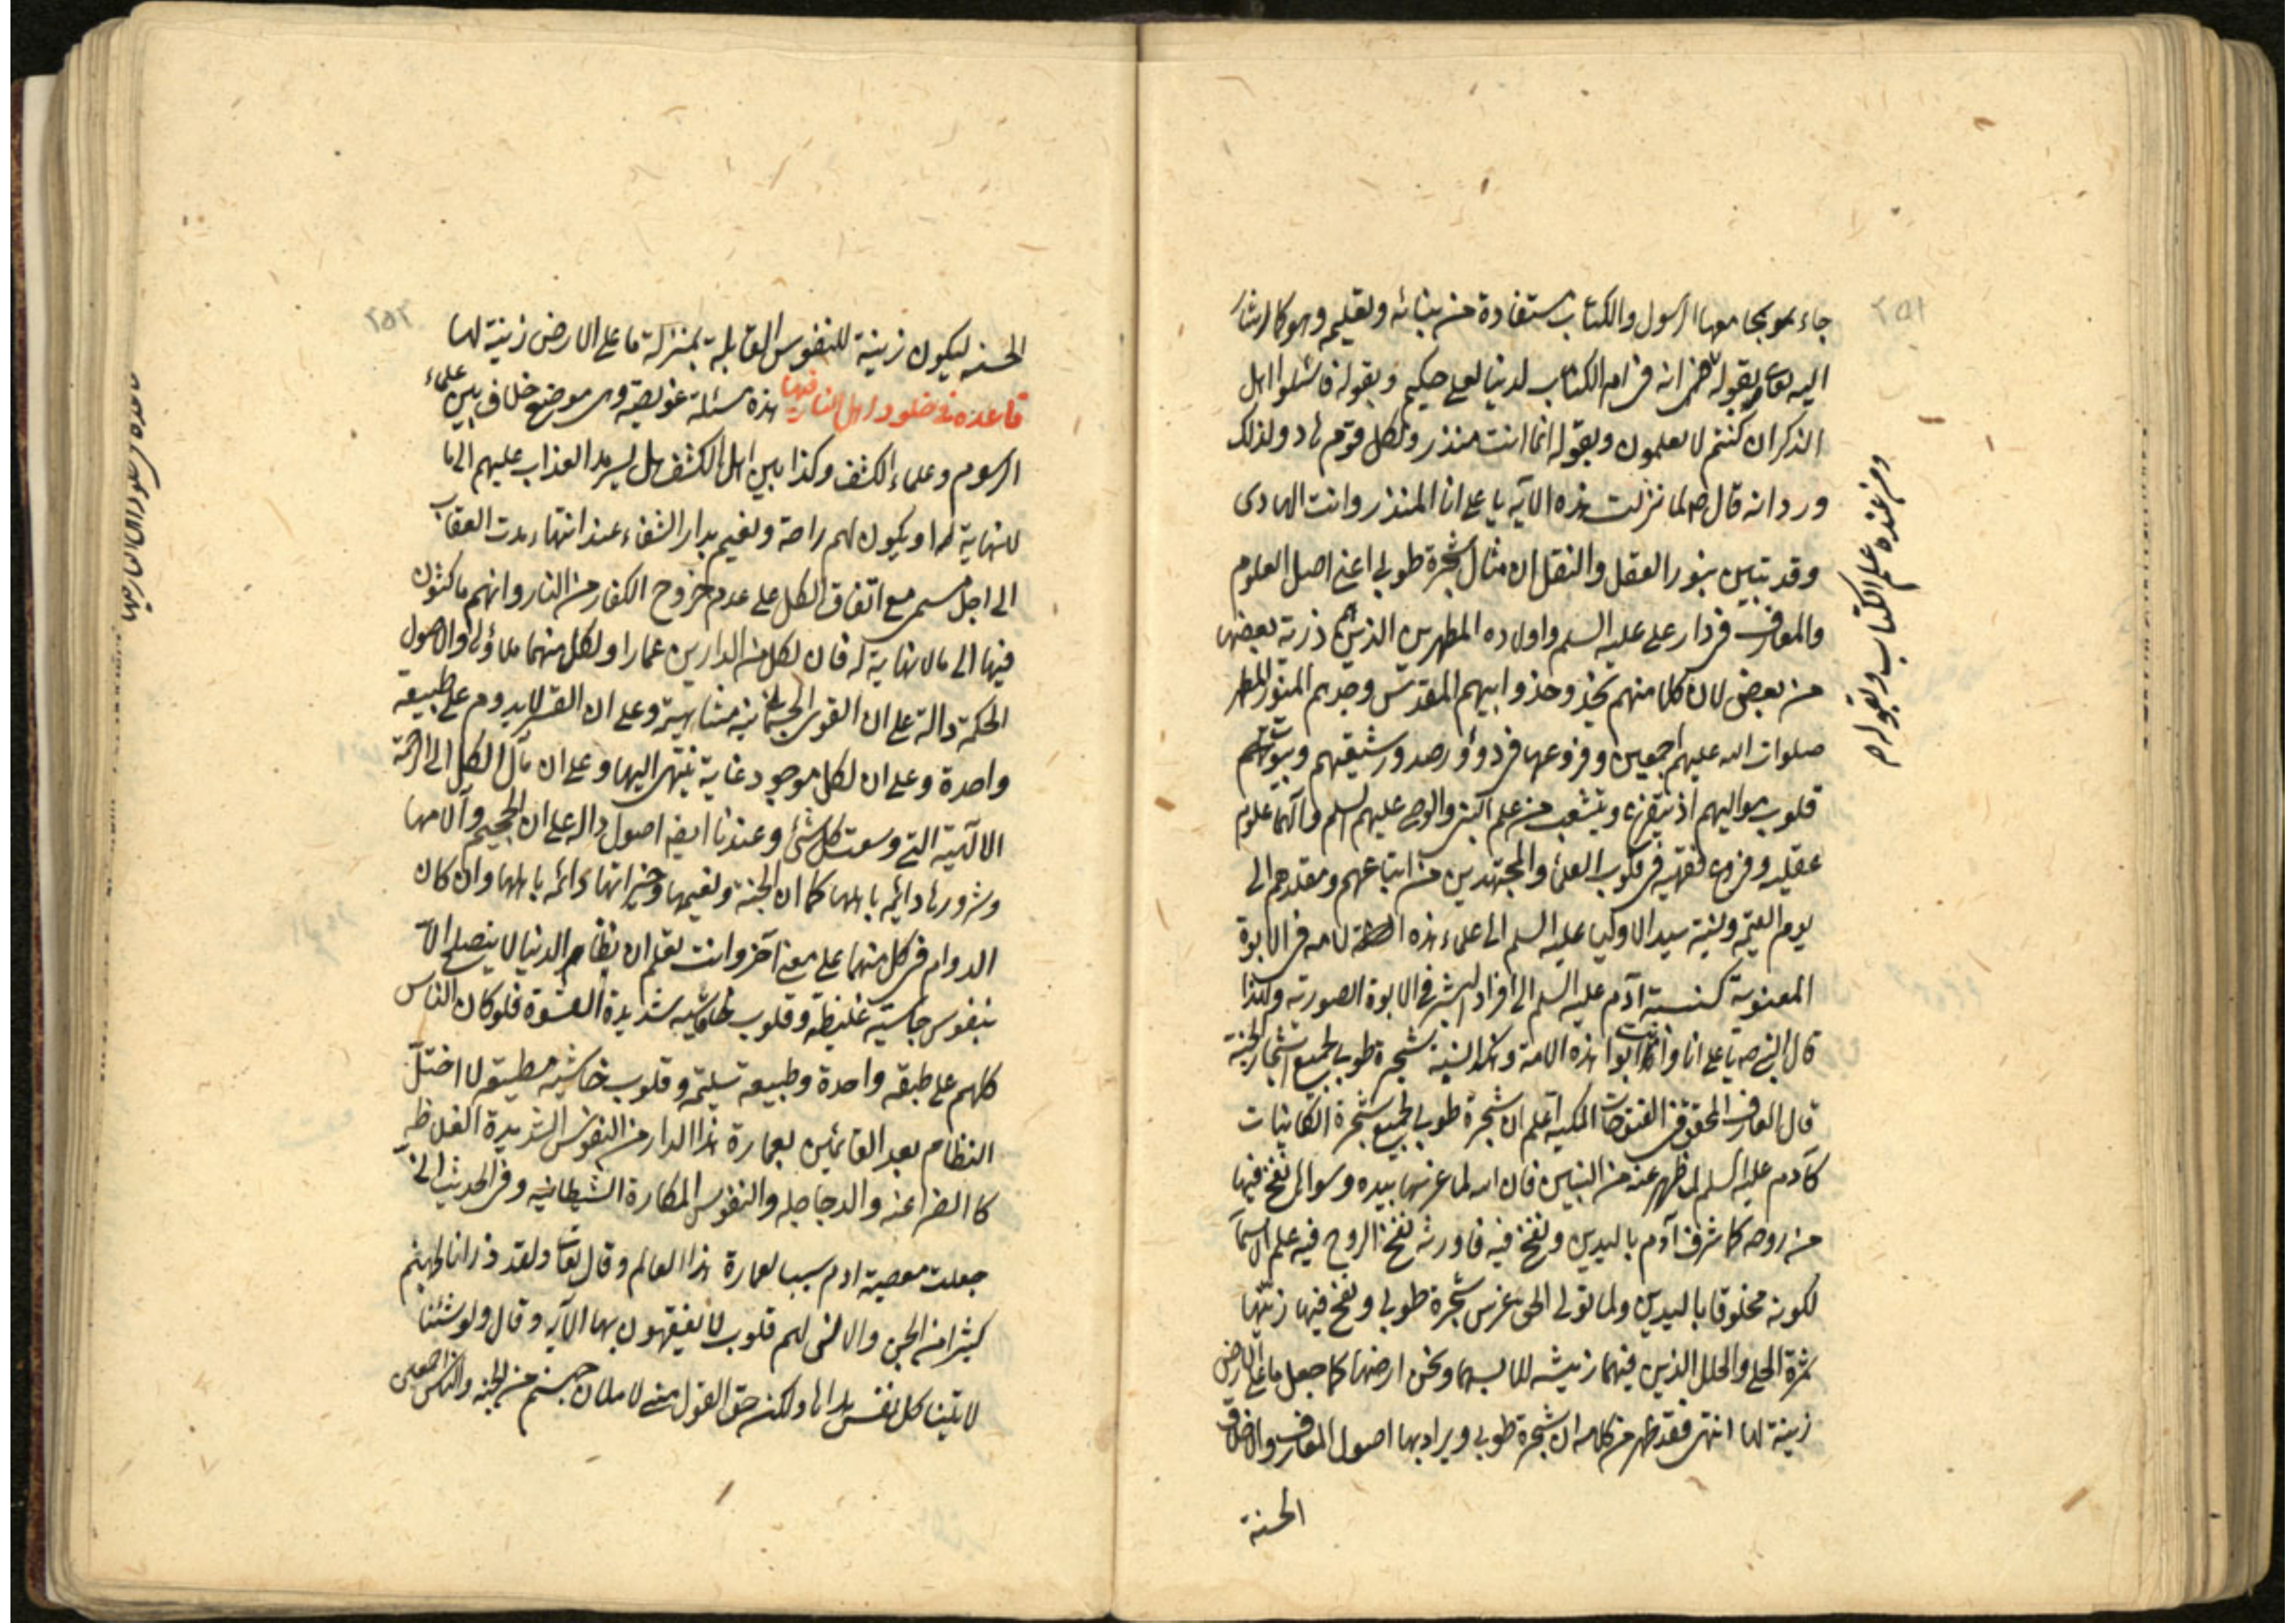 ٢٥١
جاء بموبجا معها الرسول والكتاب مستفادة من بنائه وتعليمه وهو كالاشار
اليه تعالى بقوله انه فى ام الكتاب لدينا لعلى حكيم وبقوله فاسئلوا اهل
الذكر ان كنتم لا تعلمون وبقوله انما انت منذر ولكل قوم هاد ولذلك
ورد انه قال ص لما نزلت هذه الآية يا على انا المنذر وانت الهادى
وقد تبين بنور العقل والنقل ان مثال شجرة طوبى اعنى اصل العلوم
والمعارف فى دار على عليه السلم واولاده المطهرين الذين هم ذرية بعضها
من بعض لان كلا منهم يحذو حذو ابيهم المقدس وجدهم المنور المطهر
صلوات الله عليهم اجمعين وفروعها فى دور وصدور شيعتهم وبيوتهم
قلوب مواليهم اذ يتفرع ويتشعب من علم النبى والوصى عليهم السلم وآلهما علوم
عقليه وفروع فقهيه فى قلوب العلماء والمجتهدين من اتباعهم ومقلديهم الى
يوم القيمة ونسبة سيد الاوليا عليه السلم الى علماء هذه الامة فى الابوة
المعنوية كنسبة آدم عليه السلم الى افراد البشر فى الابوة الصورية ولهذا
قال النبى ص يا على انا وانت ابوا هذه الامة وهكذا نسبة شجرة طوبى لجميع اشجار الجنة
قال العارف المحقق فى الفتوحات المكية اعلم ان شجرة طوبى لجميع شجرة الكاينات
كآدم عليه السلم لما ظهر عنه من البنين فان الله لما غرسها بيده وسواها نفخ فيها
من روحه كما شرف آدم باليدين ونفخ فيه فاورثه نفخ الروح فيه علم الاسماء
لكونه مخلوقا باليدين ولما تولى الحق غرس شجرة طوبى ونفخ فيها زينها
بثمرة الحلى والحلل الذين فيهما زينة للابسهما ونحن ارضها كما جعل ما على الارض
زينة لها انتهى فقد ظهر من كلامه ان شجرة طوبى ويراد بها اصول المعارف والاخلاق
الحسنة
ومن عنده علم الكتاب وبقوله
٢٥٢
الحسنه ليكون زينة للنفوس القابلة بمنزلة ما على الارض زينة لها
قاعدة فى خلود اهل النار فيها هذه مسئلة عويصة وهى موضع خلاف بين علماء
الرسوم وعلماء الكشف وكذا بين اهل الكشف هل يسرمد العذاب عليهم الى ما
لا نهاية له او يكون لهم راحة ونعيم بدار الشقاء عند انتهاء مدت العقاب
الى اجل مسمى مع اتفاق الكل على عدم خروج الكفار من النار وانهم ماكثون
فيها الى مالا نهاية له فان لكل من الدارين عمارا ولكل منهما ملاؤها والاصول
الحكمة دالة على ان القوى الجسمانية متناهية وعلى ان القسر لا يدوم على طبيعة
واحدة وعلى ان لكل موجود غاية ينتهى اليها وعلى ان مآل الكل الى الرحمة
الالهية التى وسعت كل شئ وعندنا ايضا اصول داله على ان الجحيم وآلامها
وشرورها دائمة باهلها كما ان الجنة ونعيمها وخيراتها دائمه باهلها وان كان
الدوام فى كل منهما على معنى آخر وانت تعلم ان نظام الدنيا لا ينصلح الا
بنفوس جاسية غليظة وقلوب شديدة القسوة فلو كان الناس
كلهم على طبقه واحدة وطبيعه سليمة وقلوب خاشية مطيعه لا اختل
النظام بعدم القائمين بعمارة هذا الدار من النفوس الشديدة الغلاظ
كالفراعنه والدجاجله والنفوس المكارة الشيطانيه وفى الحديث انى
جعلت معصية ادم سببا لعمارة هذا العالم وقال تعالى ولقد ذرانا لجهنم
كثيرا من الجن والانس لهم قلوب لا يفقهون بها الآية وقال ولو شئنا
لاتينا كل نفس هداها ولكن حق القول منى لاملان جهنم من الجنه والناس اجمعين